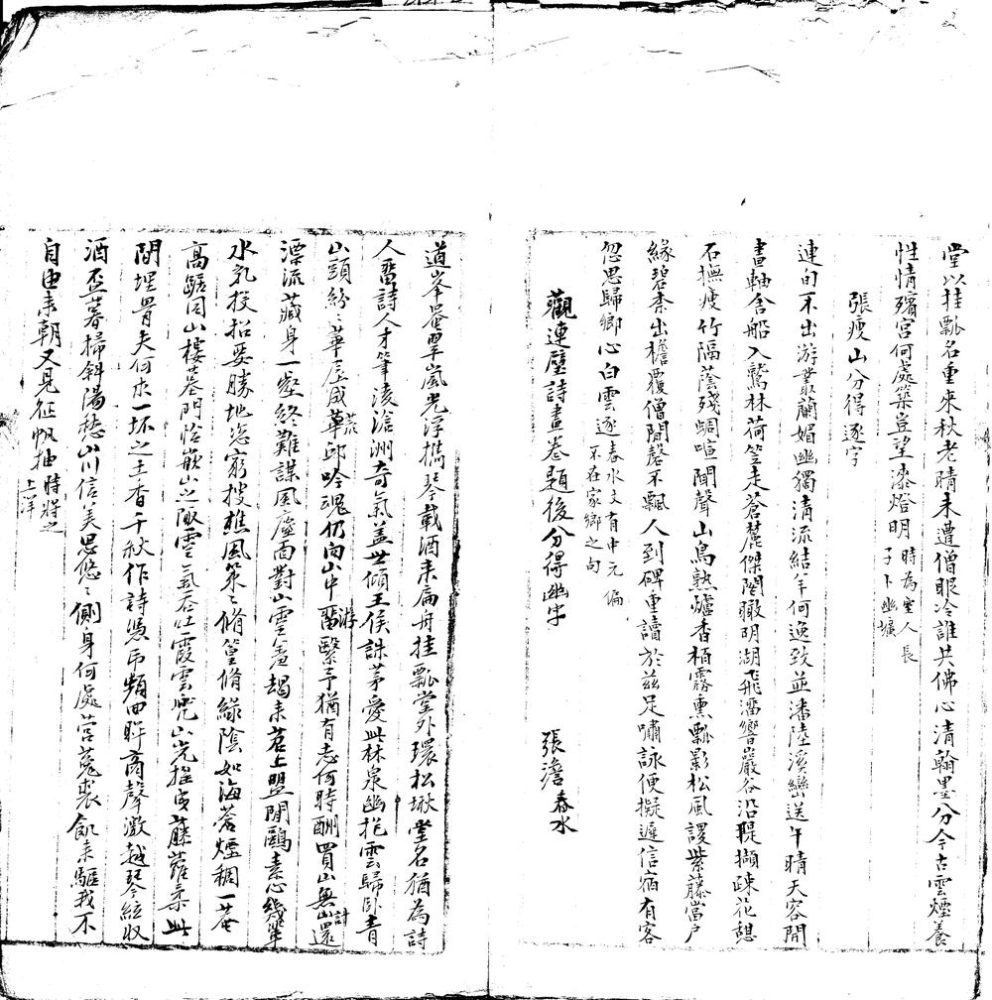 堂以挂瓢名重來秋老晴未遭僧眼冷誰共佛心清翰墨分今古雲煙養
性情殯宮何處築豈望漆燈明時為室人長子卜幽壙
張瘦山分得逐字
連旬不出游叢蘭媚幽獨清流結羊何逸致並潘陸溪巒送午晴天容開
畫軸含船入鷲林荷笠走蒼麓傑閣瞰明湖飛濤響巖谷沿隄擷疎花憩
石撫瘦竹隔蔭殘蜩喧聞聲山鳥熟爐香栢露熏瓢影松風謖紫藤當戶
緣碧柰出檐覆僧閒磬不飄人到碑重讀於茲足嘯詠便擬遲信宿有客
忽思歸鄉心白雲逐春水文有中元偏不在家鄉之句
觀連璧詩畫卷題後分得幽字 張澹春水
道峯鬱翠嵐光浮攜琴載酒来扁舟挂瓢堂外環松楸堂名猶為詩
人畱詩人才筆凌滄洲奇氣蓋世傾王侯誅茅愛此林泉幽抱雲歸卧青
山頭紛紛華屋成荒邱吟魂仍向山中游繄予猶有志何時酬買山無計還
漂流藏身一壑終難謀風廬面對山雲羞朅来苕上盟閒鷗素心幾輩
水乳投招要勝地恣窮搜樵風策策脩篁脩綠陰如海蒼煙稠一菴
高踞因山樓墓門恰嵌山之陬雲氣吞吐霞雲兜山光搖曳藤蘿柔此
間埋骨夫何求一抔之土香千秋作詩憑弔頻回眸商聲激越琴絃收
酒盃暮掃斜陽愁山川信美思悠悠側身何處營菟裘飢来驅我不
自由来朝又見征帆抽時將之上洋